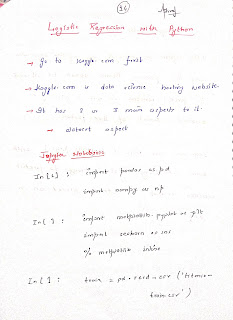 26
Logistic Regression with Python
→ Go to Kaggle.com first
→ Kaggle.com is data science hosting website.
→ It has 2 or 3 main aspects to it.
→ dataset aspect
Jupyter Notebooks
In [1] : import pandas as pd
import numpy as np
In [ ] : import matplotlib.pyplot as plt
import seaborn as sns
% matplotlib inline
In [ ] : train = pd.read_csv ('titanic_
train.csv')